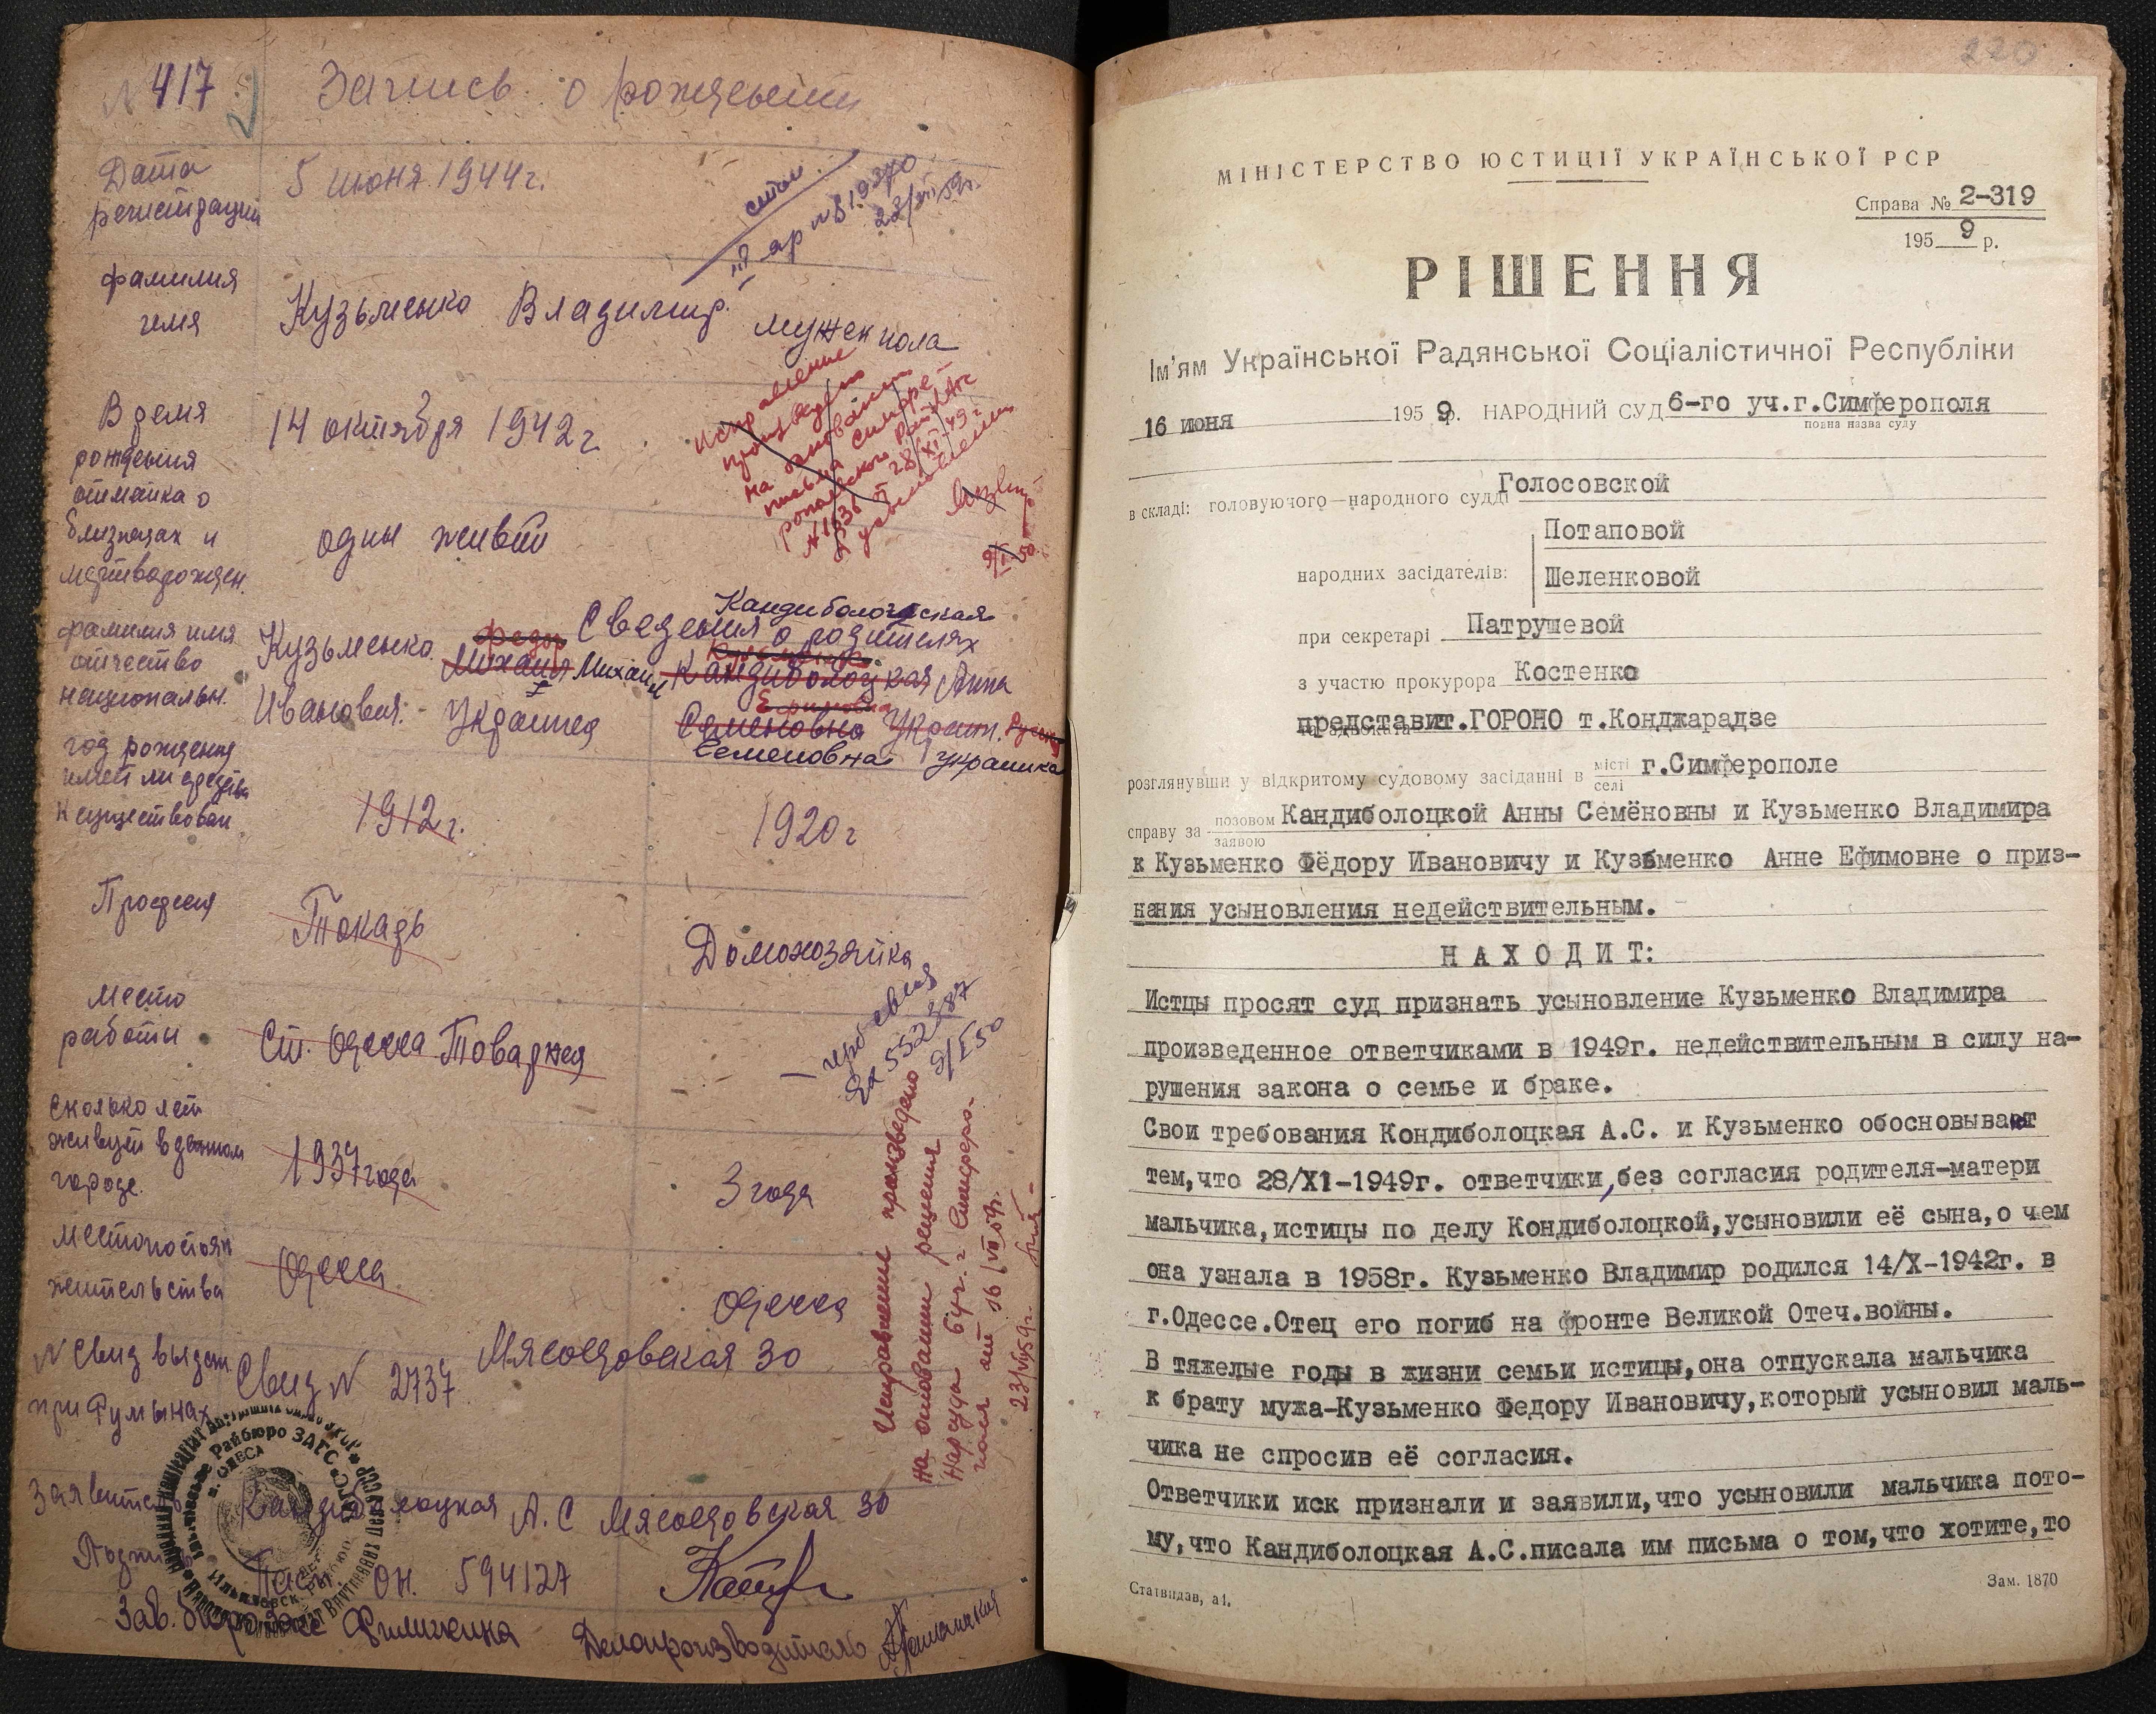 № 417
Запись о рождении
Дата регистрации
5 июня 1944 г.
23/VII 59г.
фамилия
имя
Кузьменко Владимир.
мужск пола
Время
рождения
отметка о
близнецах и
мертворожден.
14 октября 1942 г.
один живой
Исправление
произведено
на основании
письма Симфе-
ропольского райЗАГС
№ 1636 от 28/XI-49 г.
9/I-50.
Сведения о родителях
Кандиболоцкая
фамилия имя
отчество
национальн.
Кузьменко Федор
Михаил Михаил
Кузьменко
Кандиболоцкая Анна
Ивановия. Украинец
Ефимовна
Семеновна Украин. Русск
Семеновна украинка
год рождения
имеет ли средства
к существован
1912 г.
1920 г
Професия
Токарь
Домохозяйка
место
работы
Ст. Одесса Товарная
9/I 50
сколько лет
живущей в данном
городе.
1937 года
3 года
местопостоян
жительства
Одесса
Одесса
Мясоедовская 30
Исправление произведено
на основании решения
Нарсуда 6 уч. г. Симферо-
поля от 16/VI 59г.
23/VII 59г.
№ Свид выдан
при Румынах
Свид № 2737
Заявитель
Кандиболоцкая А. С Мясоедовская 30
Райбюро ЗАГС
Подпись
Пасп. ОН. 594127
Зав. бюро загс Филипкина Делопроизводитель
220
МІНІСТЕРСТВО ЮСТИЦІЇ УКРАЇНСЬКОЇ РСР
Справа № 2-319
195 9 р.
РІШЕННЯ
Ім'ям Української Радянської Соціалістичної Республіки
16 июня 195 9 р. НАРОДНИЙ СУД 6-го уч.г.Симферополя
повна назва суду
в складі: головуючого—народного судді Голосовской
Потаповой
народних засідателів: Шеленковой
при секретарі Патрушевой
з участю прокурора Костенко
та адвоката
представит.ГОРОНО т.Конджарадзе
розглянувши у відкритому судовому засіданні в місті г.Симферополе
селі
справу за позовом Кандиболоцкой Анны Семёновны и Кузьменко Владимира
заявою
к Кузьменко Фёдору Ивановичу и Кузьменко Анне Ефимовне о приз-
нания усыновления недействительным.
Н А Х О Д И Т:
Истцы просят суд признать усыновление Кузьменко Владимира
произведенное ответчиками в 1949г. недействительным в силу на-
рушения закона о семье и браке.
Свои требования Кондиболоцкая А.С. и Кузьменко обосновывают
тем,что 28/XI-1949г. ответчики,без согласия родителя-матери
мальчика,истицы по делу Кондиболоцкой,усыновили её сына,о чем
она узнала в 1958г. Кузьменко Владимир родился 14/X-1942г. в
г.Одессе.Отец его погиб на фронте Великой Отеч.войны.
В тяжелые годы в жизни семьи истицы,она отпускала мальчика
к брату мужа-Кузьменко Федору Ивановичу,который усыновил маль-
чика не спросив её согласия.
Ответчики иск признали и заявили,что усыновили мальчика пото-
му,что Кандиболоцкая А.С.писала им письма о том,что хотите,то
Статвидав, а1.
Зам. 1870